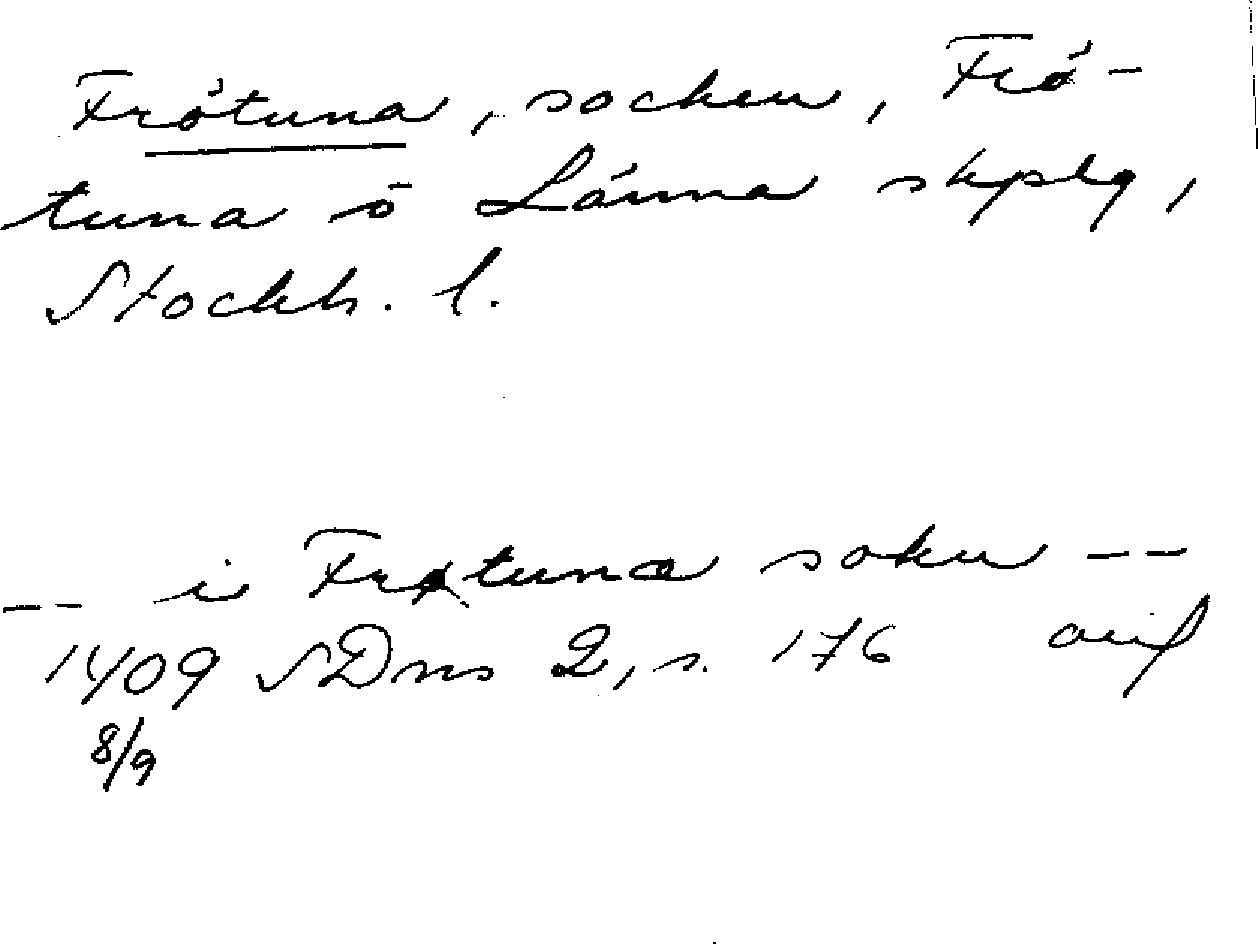 Frötuna, socken, Frö-
tuna o Länna skplg,
Stockh. l.
-- i Frøtuna sokn --
1409 SDns 2, s. 176
8/9